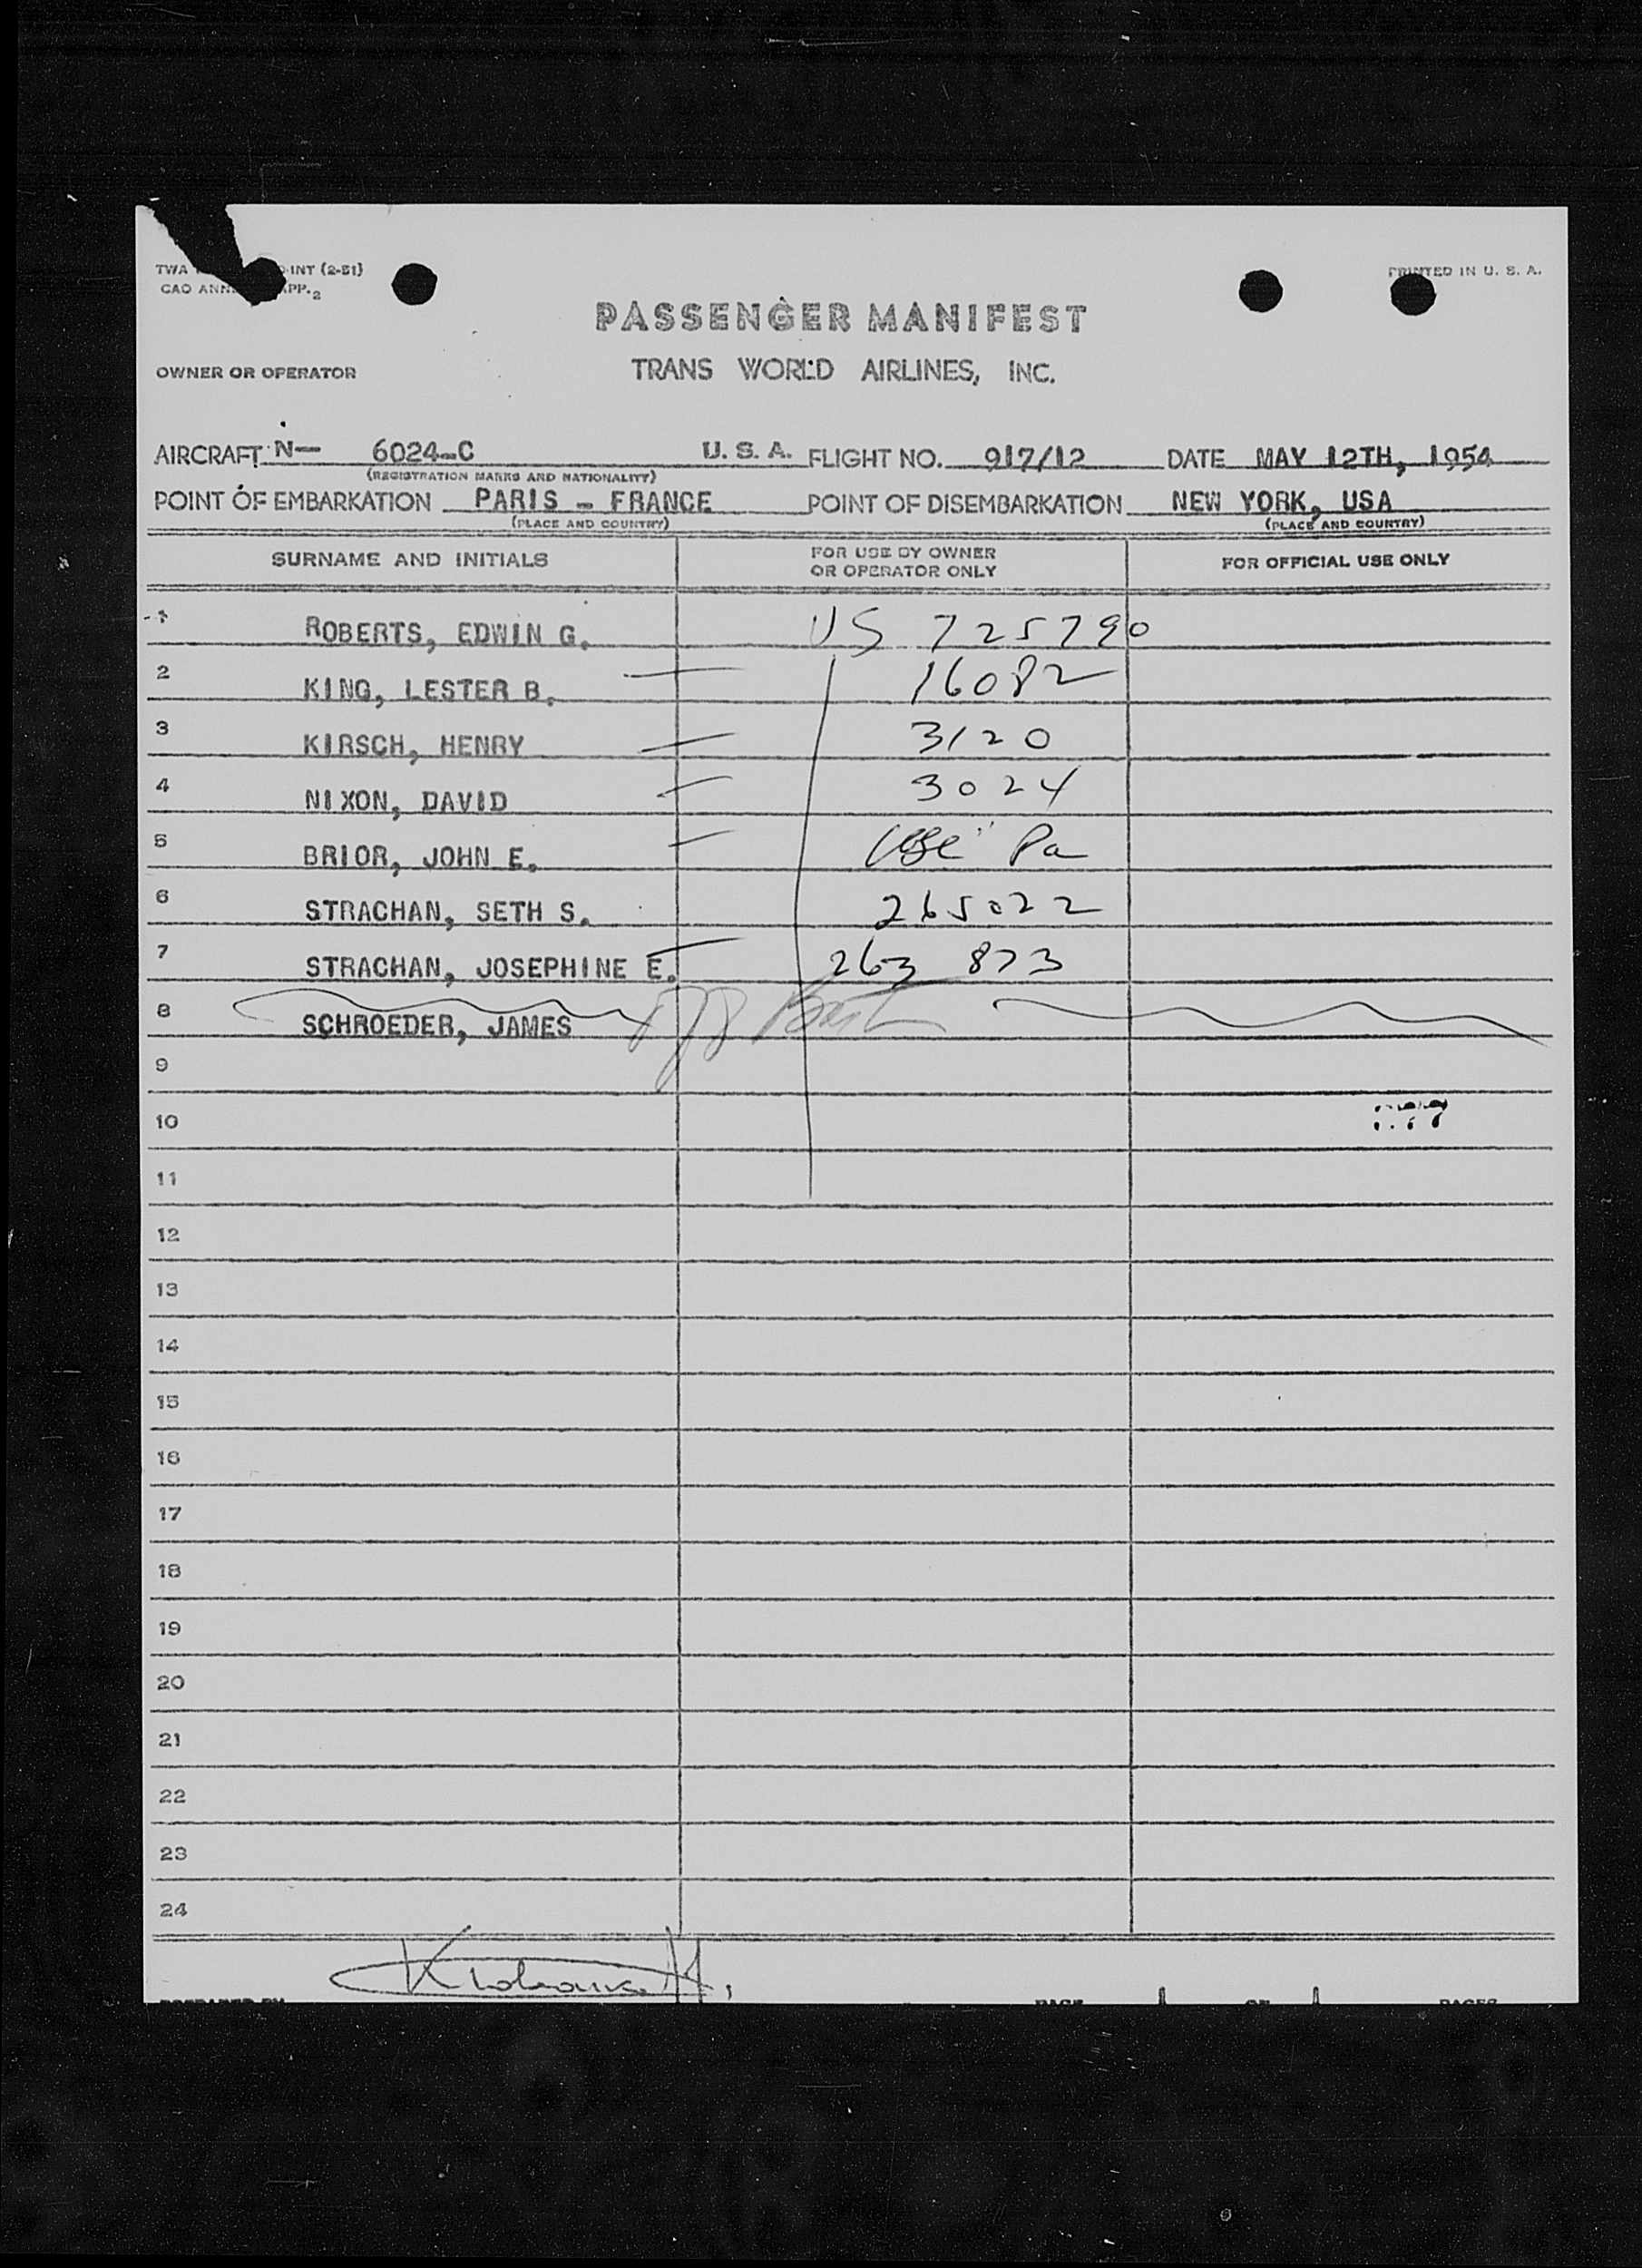 TWA INT (2-51)
PRINTED IN U. S. A.
CAO ANN. APP. 2
PASSENGER MANIFEST
OWNER OR OPERATOR TRANS WORLD AIRLINES, INC.
AIRCRAFT N— 6024-C U. S. A. FLIGHT NO. 917/12 DATE MAY 12TH, 1954
(REGISTRATION MARKS AND NATIONALITY)
POINT OF EMBARKATION PARIS - FRANCE POINT OF DISEMBARKATION NEW YORK, USA
(PLACE AND COUNTRY) (PLACE AND COUNTRY)
SURNAME AND INITIALS FOR USE BY OWNER OR OPERATOR ONLY FOR OFFICIAL USE ONLY
1 ROBERTS, EDWIN G. US 725790
2 KING, LESTER B. — 16082
3 KIRSCH, HENRY — 3120
4 NIXON, DAVID — 3024
5 BRIOR, JOHN E. — Pa
6 STRACHAN, SETH S. 265022
7 STRACHAN, JOSEPHINE E. — 263 873
8 SCHROEDER, JAMES
9
10
11
12
13
14
15
16
17
18
19
20
21
22
23
24
PREPARED BY PAGE 1 OF 1 PAGES